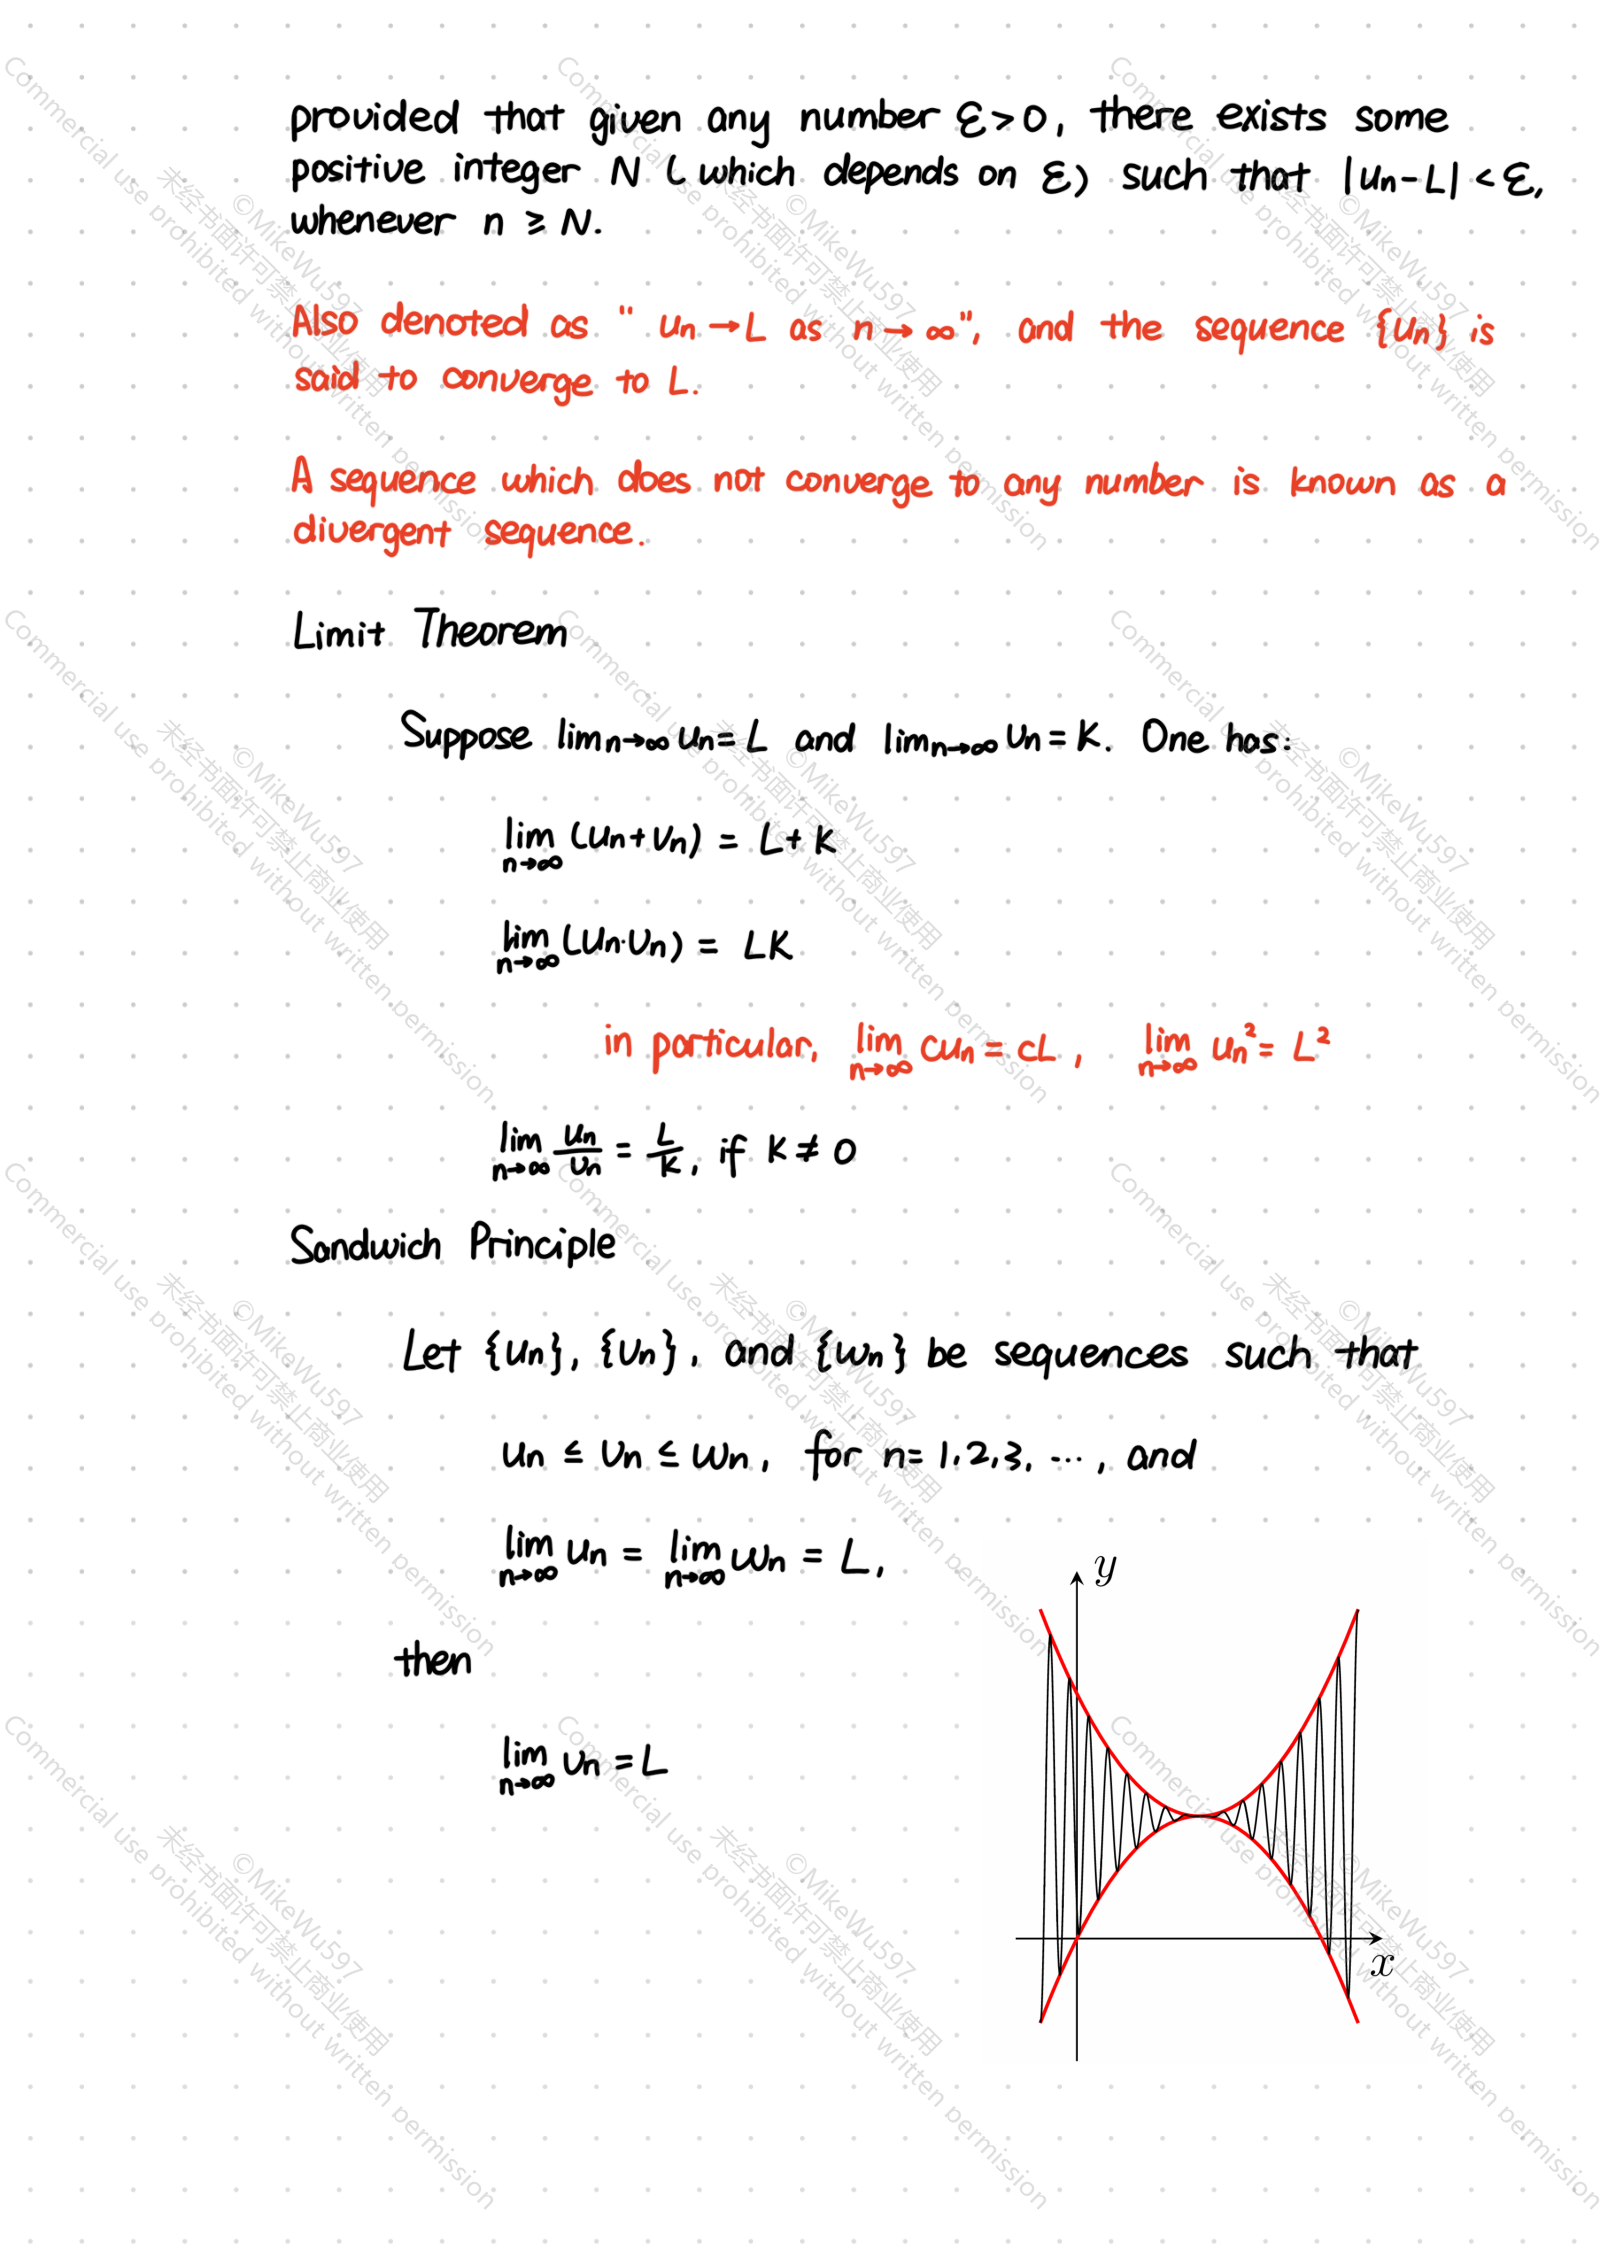 provided that given any number ε > 0, there exists some
positive integer N (which depends on ε) such that |un - L| < ε,
whenever n ≥ N.
Also denoted as " un → L as n → ∞", and the sequence {un} is
said to converge to L.
A sequence which does not converge to any number is known as a
divergent sequence.
Limit Theorem
Suppose lim n→∞ un = L and lim n→∞ vn = K. One has:
lim n→∞ (un + vn) = L + K
lim n→∞ (un · vn) = LK
in particular, lim n→∞ cun = cL, lim n→∞ un² = L²
lim n→∞ un/vn = L/K, if K ≠ 0
Sandwich Principle
Let {un}, {vn}, and {wn} be sequences such that
un ≤ vn ≤ wn, for n = 1, 2, 3, ..., and
lim n→∞ un = lim n→∞ wn = L,
then
lim n→∞ vn = L
y
x
©MikeWu597
未经书面许可禁止商业使用
Commercial use prohibited without written permission